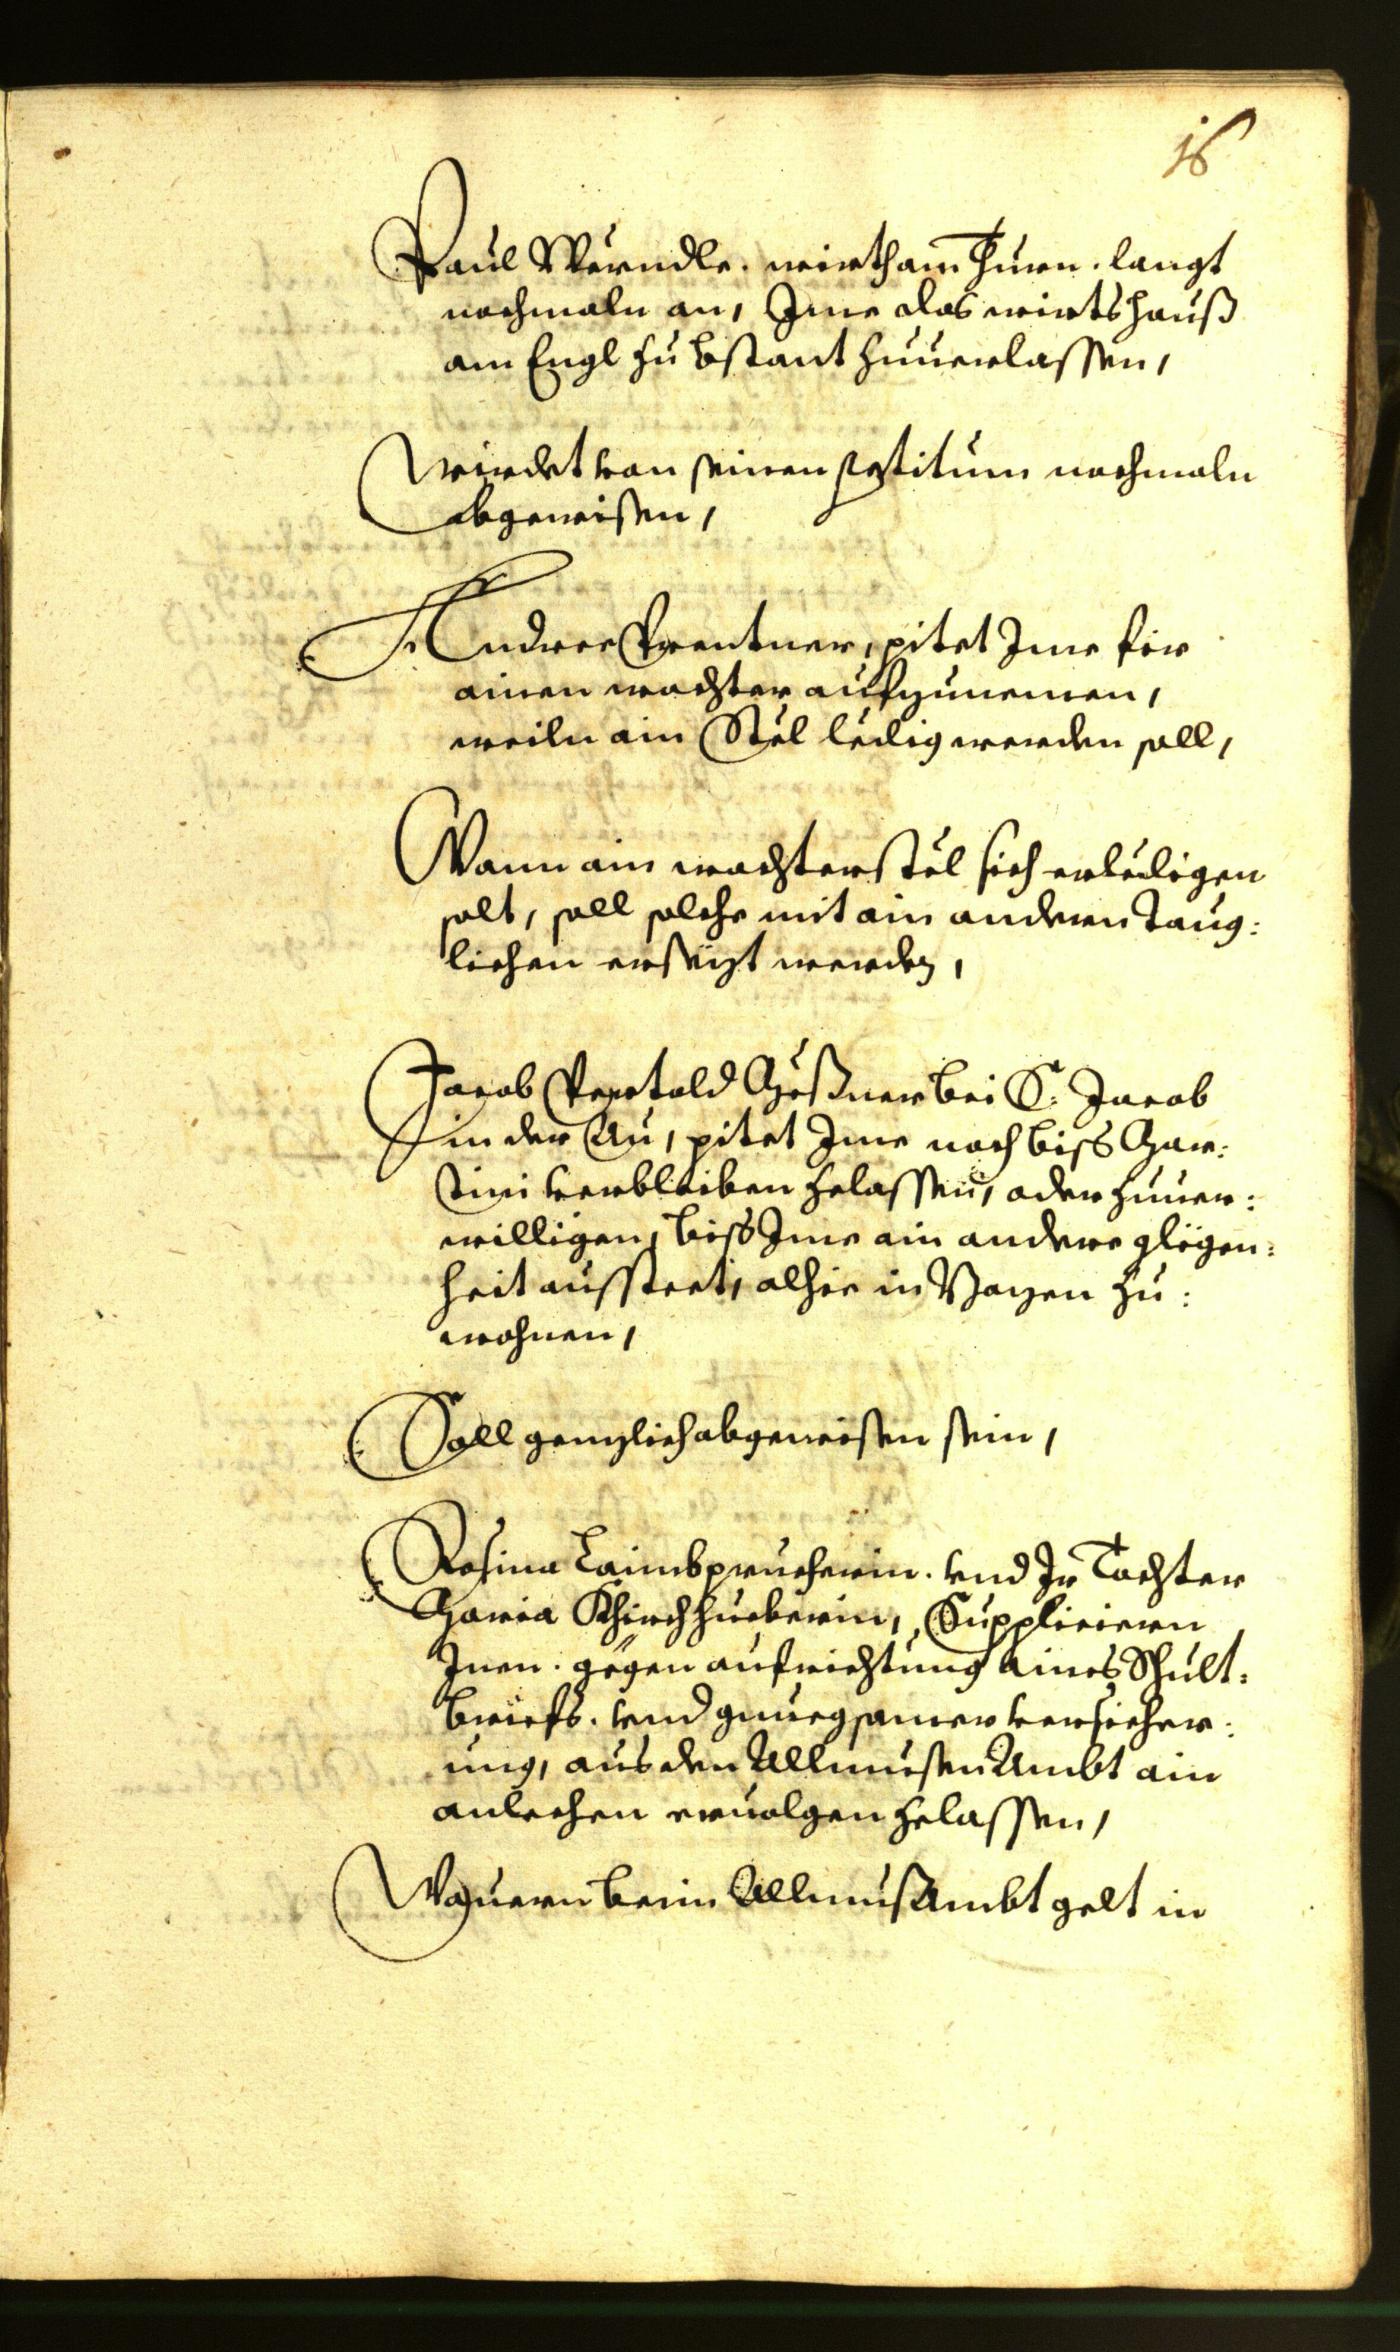 16
Paul Werndle. wirth am Thurn. langt
nochmaln an, Ime das wirtshauß
am Engl zu bstant zuuerlassen,
wirdet von seinen petitum nochmaln
abgewisen,
Andree Prentner, pitet Ime fir
ainen wachter aufzunemen,
weiln ain Stöl ledig werden soll,
Wann ain wachterstöl sich erledigen
solt, soll solche mit ain andern Taug:
lichen ersezt werden,
Jacob Pertold Gößner bei S: Jacob
in der Au, pitet Ime noch biss Mar:
tini verbleiben zelassen, oder zuuer:
willigen, biss Ime ain andere glögen:
heit ausstert, alhie in Bozen zu:
wohnen,
Soll genzlich abgewisen sein,
Rosina Laimbprucherin. vnd Ir Tochter
Maria Khirchhueberin, Supplicieren
Inen. gögen aufrichtung aines Schult:
briefs. vnd gnuegsamer versicher:
ung, aus den Allmuesen Ambt ain
anlechen eruolgen zelassen,
Wouern beim Allmuß Ambt gelt in